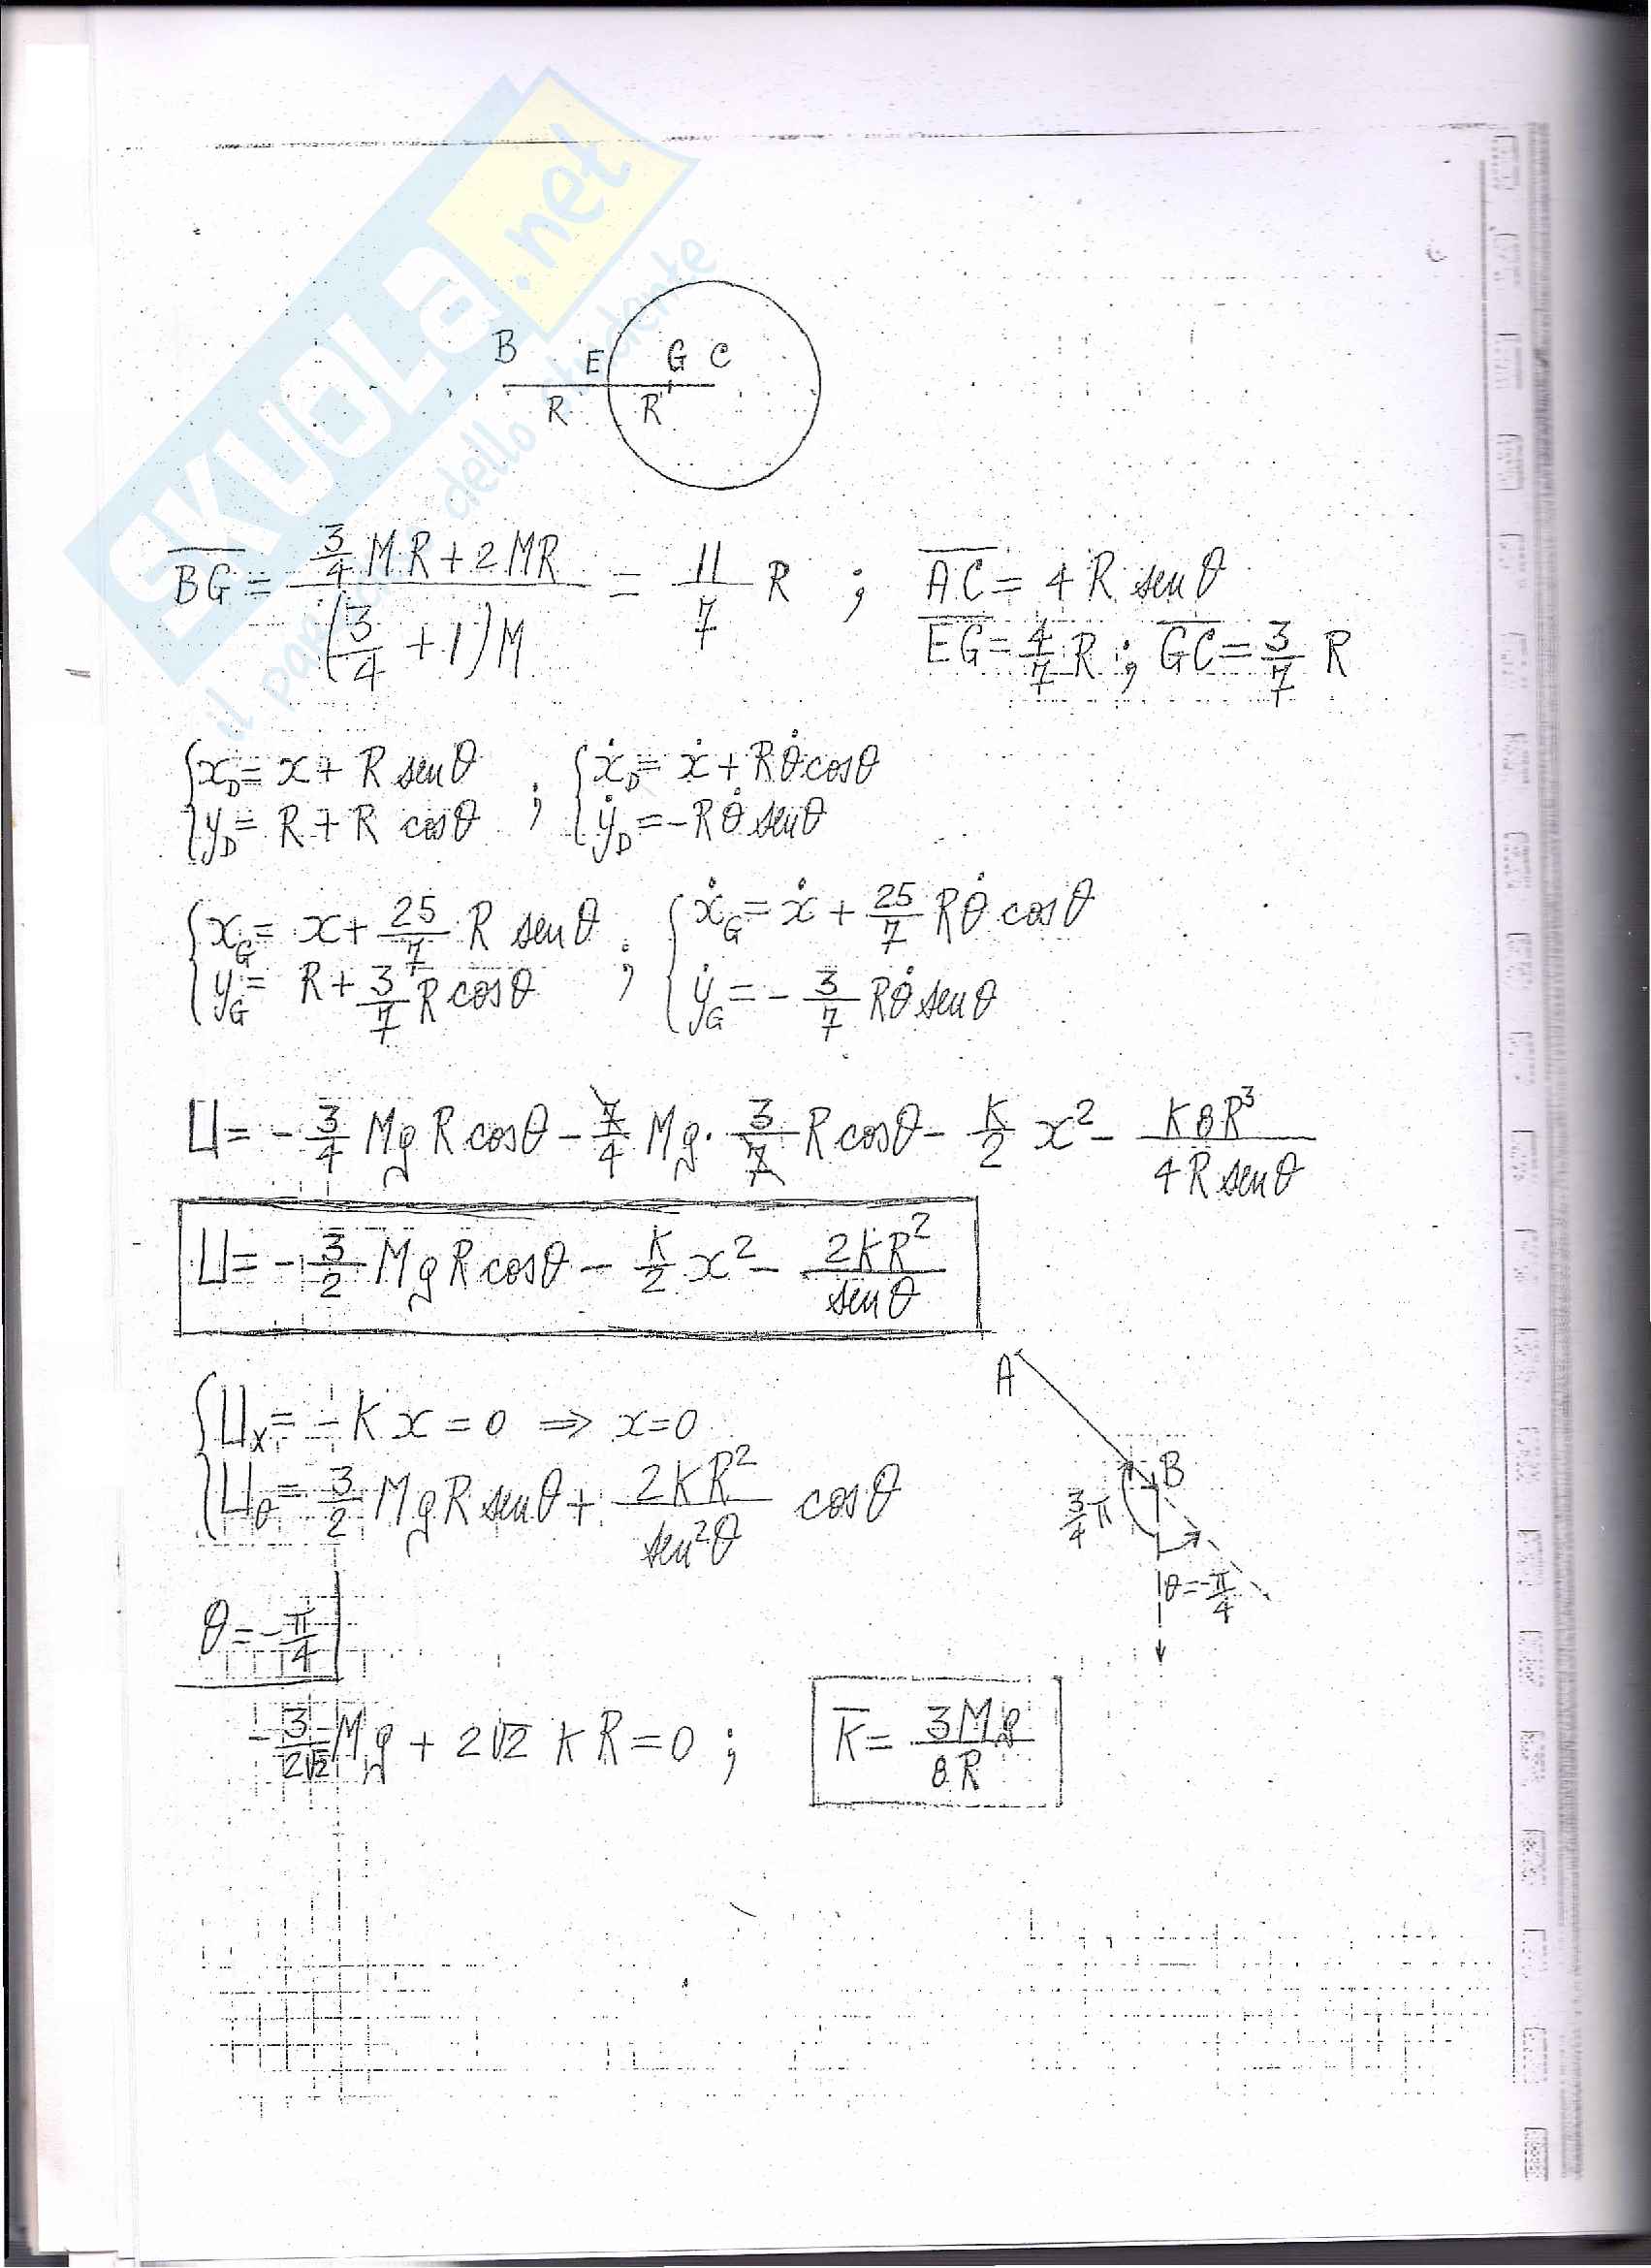 SKUOLA.net
il paradiso dello studente
B E G C
R R
BG = (3/4 MR + 2MR) / ((3/4 + 1)M) = 11/7 R ; AC = 4R senθ
EG = 4/7 R ; GC = 3/7 R
{ x_D = x + R senθ ; { ẋ_D = ẋ + Rθ̇ cosθ
{ y_D = R + R cosθ { ẏ_D = -Rθ̇ senθ
{ x_G = x + 25/7 R senθ ; { ẋ_G = ẋ + 25/7 Rθ̇ cosθ
{ y_G = R + 3/7 R cosθ { ẏ_G = - 3/7 Rθ̇ senθ
U = - 3/4 MgR cosθ - 7/4 Mg · 3/7 R cosθ - K/2 x² - K8R³ / 4R senθ
U = - 3/2 MgR cosθ - K/2 x² - 2KR² / senθ
{ U_x = -Kx = 0 ⇒ x = 0
{ U_θ = 3/2 MgR senθ + 2KR² / sen²θ cosθ
A
B
3/4 π
θ = -π/4
θ = -π/4
- 3/2√2 Mg + 2√2 KR = 0 ; K̄ = 3Mg / 8R